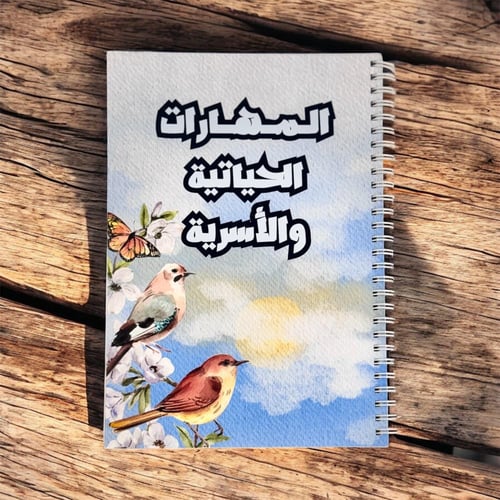 المهارات
الحياتية
والأسرية